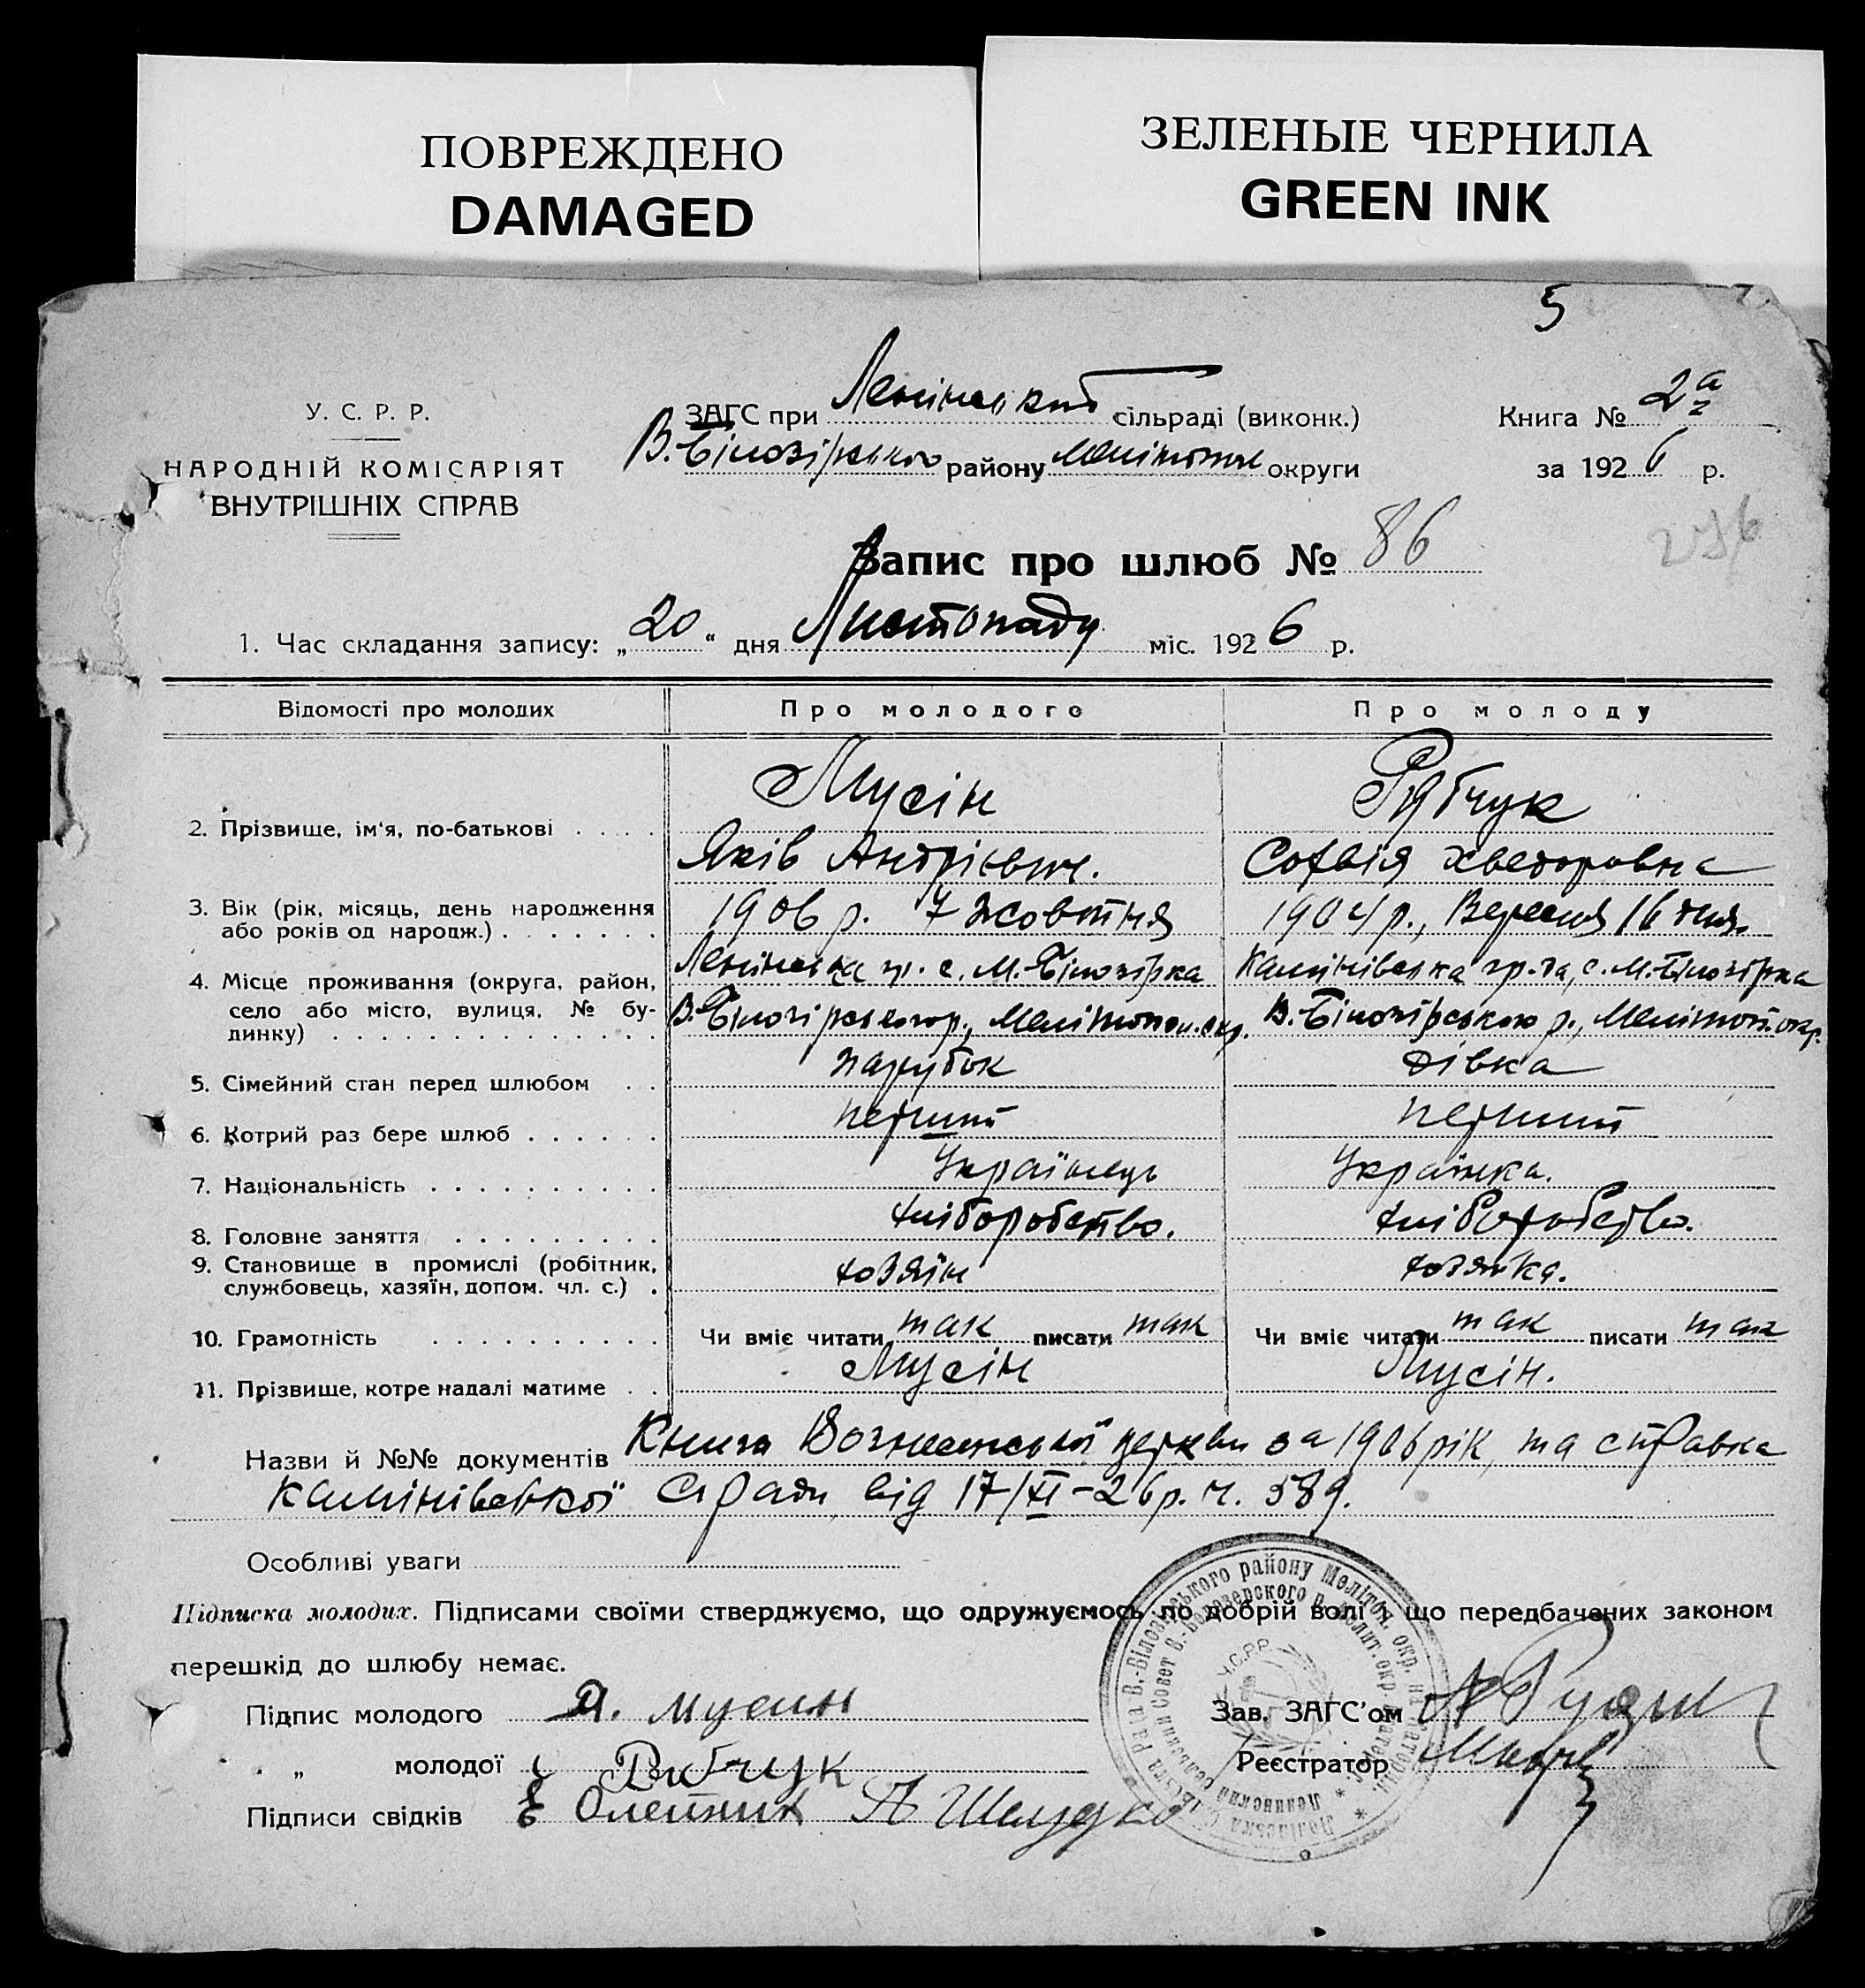 ПОВРЕЖДЕНО
DAMAGED
ЗЕЛЕНЫЕ ЧЕРНИЛА
GREEN INK
5
У. С. Р. Р.
НАРОДНІЙ КОМІСАРІЯТ
ВНУТРІШНІХ СПРАВ
ЗАГС при Ленінській сільраді (виконк.)
В.-Білозірського району Мелітопол округи
Книга № 2а
за 1926 р.
276
Запис про шлюб № 86
1. Час складання запису: „20“ дня Листопаду міс. 1926 р.
Відомості про молодих
Про молодого
Про молоду
2. Прізвище, ім'я, по-батькові
Мусін
Рябчук
Яків Андрієвич.
Софвія Хведоровна
3. Вік (рік, місяць, день народження
або років од народж.)
1906 р. 7 жовтня
1904 р., Вересня 16 дня.
4. Місце проживання (округа, район,
село або місто, вулиця, № бу-
динку)
Ленінська гр. с. М.-Білозірка
Калінівська гр-да, с. М.-Білозірка
В.-Білозірського р., Мелітопол. окр.
В.-Білозірського р., Мелітоп. окр.
5. Сімейний стан перед шлюбом
парубок
дівка
6. Котрий раз бере шлюб
перший
перший
7. Національність
Українець
Українка.
8. Головне заняття
хліборобство.
хліборобство.
9. Становище в промислі (робітник,
службовець, хазяїн, допом. чл. с.)
хозяїн
хозяйка.
10. Грамотність
Чи вміє читати так писати так
Чи вміє читати так писати так
11. Прізвище, котре надалі матиме
Мусін
Мусін.
Назви й №№ документів Книга Вознесенської церкви за 1906 рік, та справка
Калінівської с/ради від 17/XI-26 р. ч. 589.
Особливі уваги
Підписка молодих. Підписами своїми стверджуємо, що одружуємось по добрій волі і що передбачених законом
перешкід до шлюбу немає.
Підпис молодого Я. Мусин
„ молодої Рябчук
Підписи свідків Олейник А Шелудко
Зав. ЗАГС'ом
Реєстратор
У.С.Р.Р.